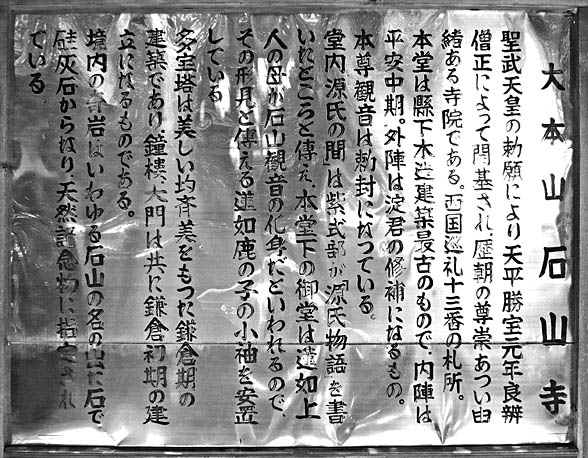 大本山石山寺
聖武天皇の勅願により天平勝宝元年良辨
僧正によって開基され、歴朝の尊崇あつい由
緒ある寺院である。西国巡礼十三番の札所。
本堂は縣下木造建築最古のもので、内陣は
平安中期。外陣は淀君の修補になるもの。
本尊觀音は勅封になっている。
堂内源氏の間は紫式部が源氏物語を書
いたところと傳え、本堂下の御堂は蓮如上
人の母が石山觀音の化身だといわれるので、
その形見と傳える蓮如鹿の子の小袖を安置
している
多宝塔は美しい均斉美をもつた鎌倉期の
建築であり鐘楼、大門は共に鎌倉初期の建
立になるものである。
境内の奇岩はいわゆる石山の名の出た石で
硅灰石からなり天然記念物に指定され
ている